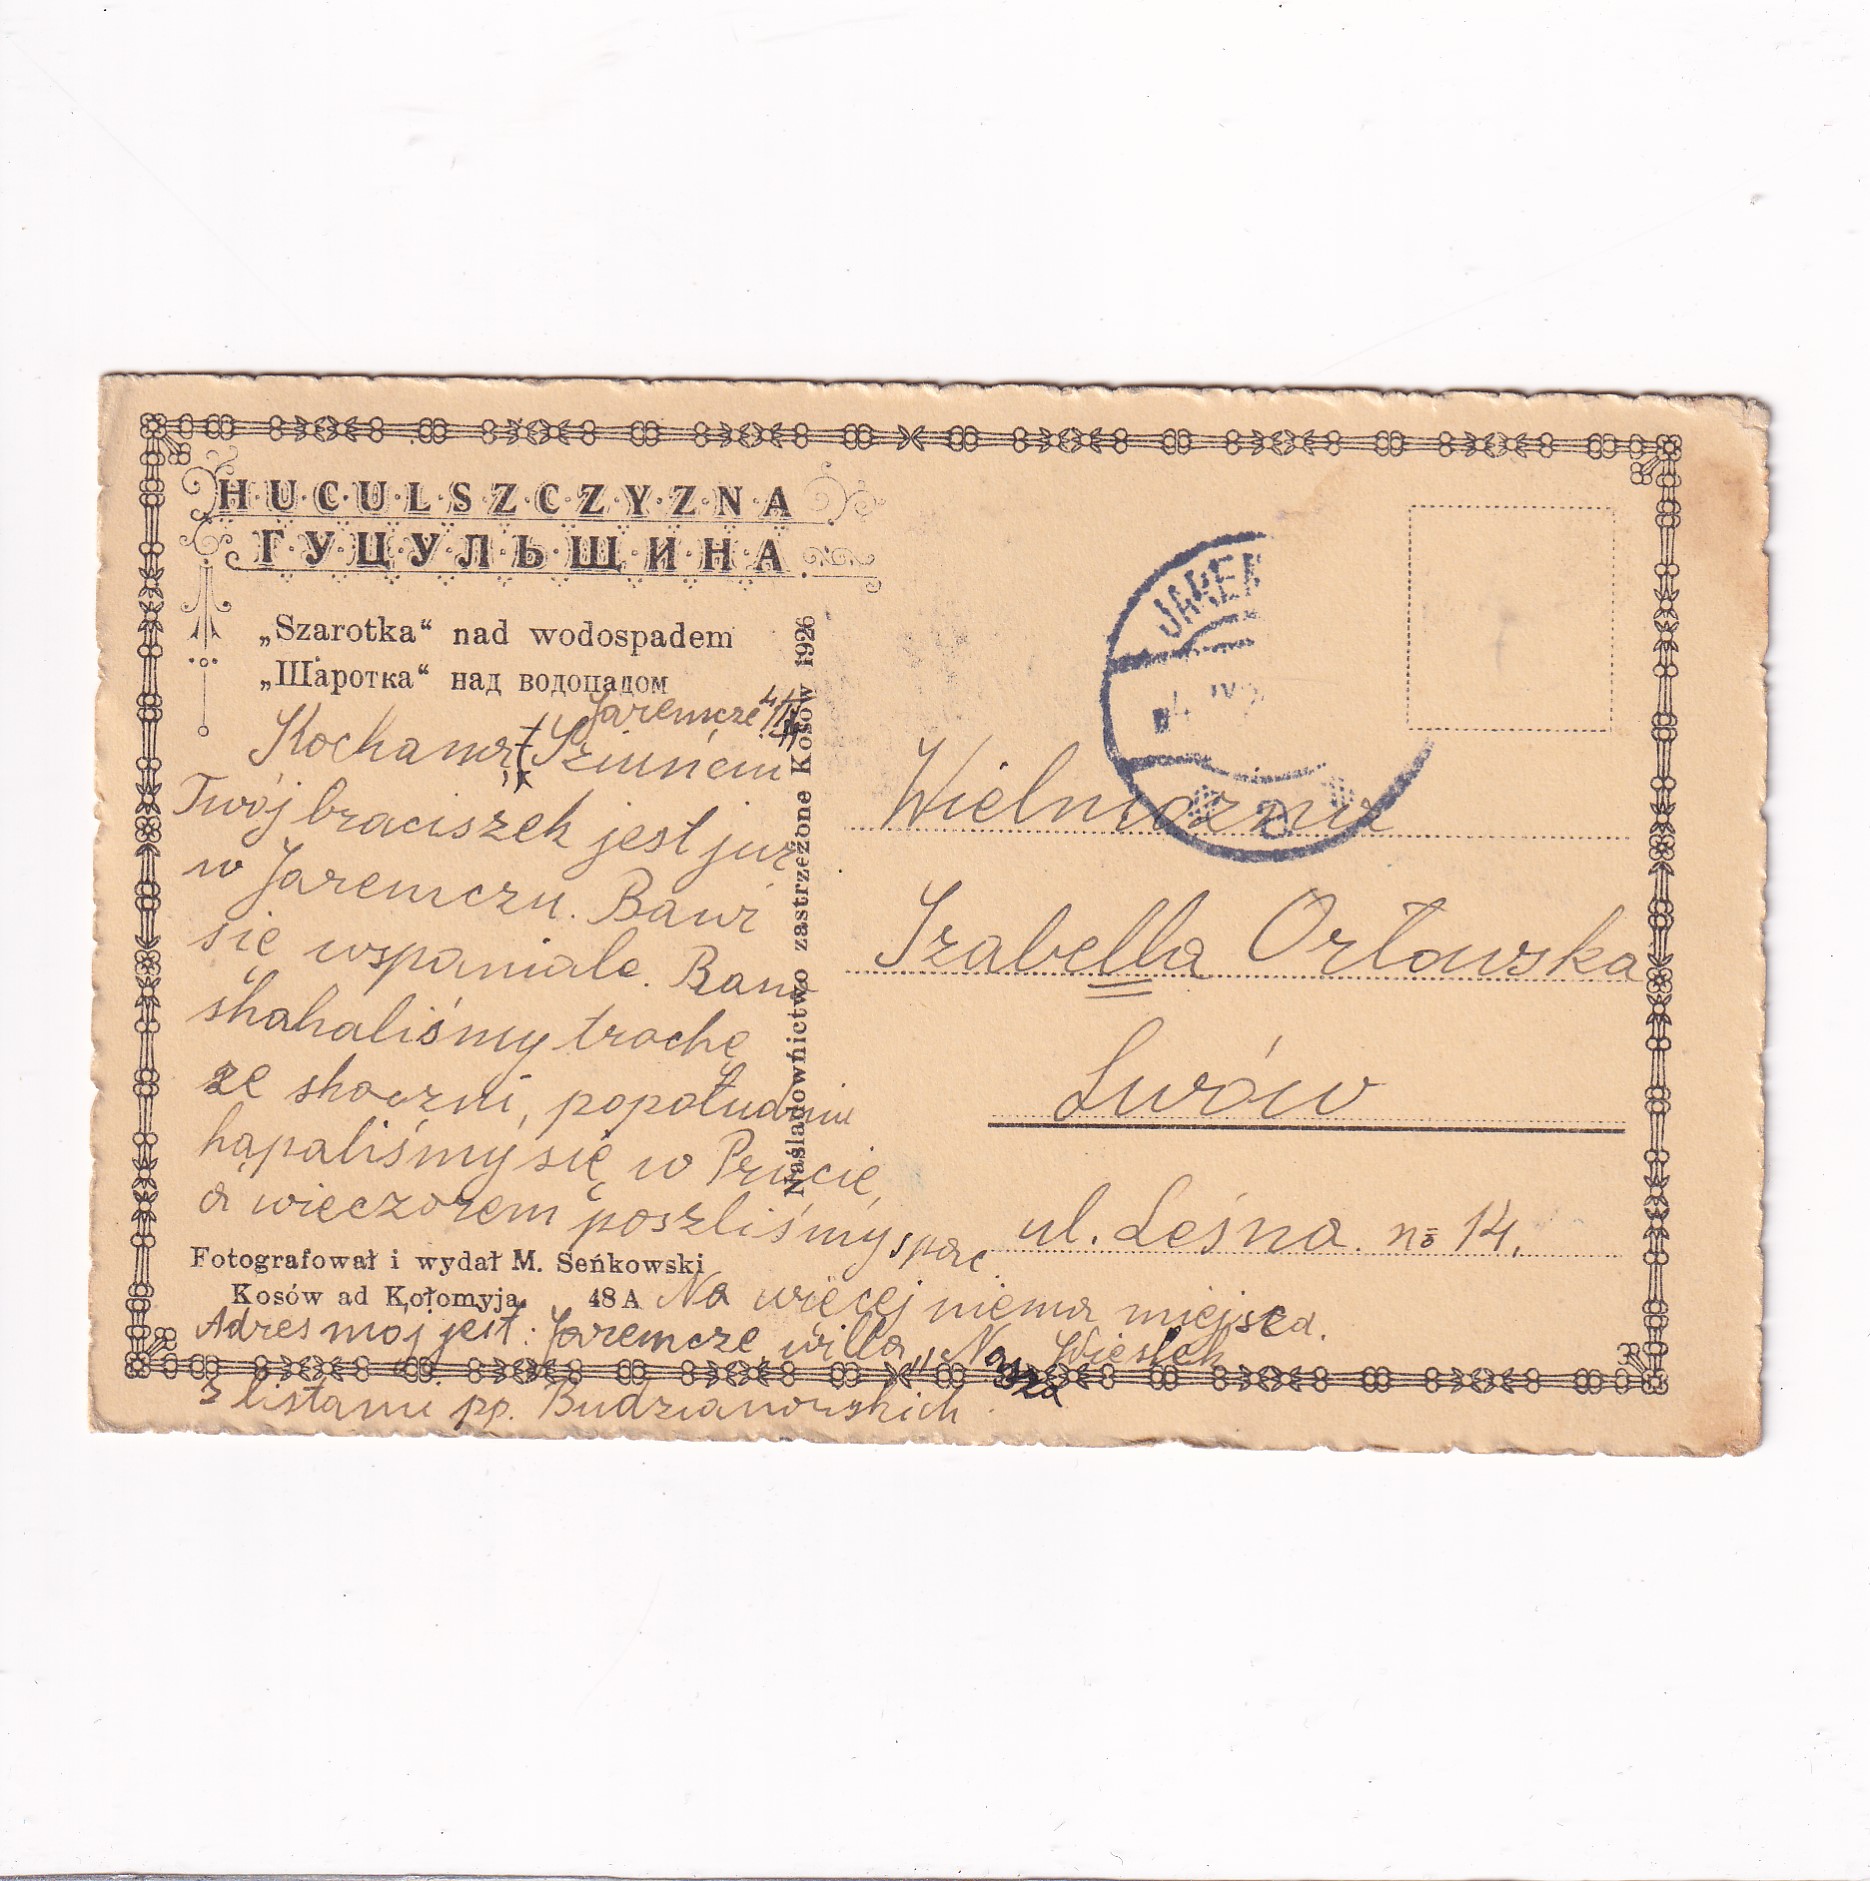 H·U·C·U·L·S·Z·C·Z·Y·Z·N·A
Г·У·Ц·У·Л·Ь·Щ·И·Н·А
„Szarotka“ nad wodospadem
„Шаротка“ над водопадом
Jaremcze 4/
Kochana
Twój braciszek jest już
w Jaremczu. Bawi
się wspaniale. Rano
skakaliśmy trochę
ze skoczni, popołudniu
kąpaliśmy się w Prucie,
a wieczorem poszliśmy spać.
Na więcej niema miejsca.
Wiesiek
Fotografował i wydał M. Seńkowski
Kosów ad Kołomyja 48 A
Adres mój jest: Jaremcze willa „Nasza
z listami pp. Budzianowskich
Naśladownictwo zastrzeżone Kosów 1926
JAREM
Wielmożna
Izabella Orłowska
Lwów
ul. Leśna no 14.